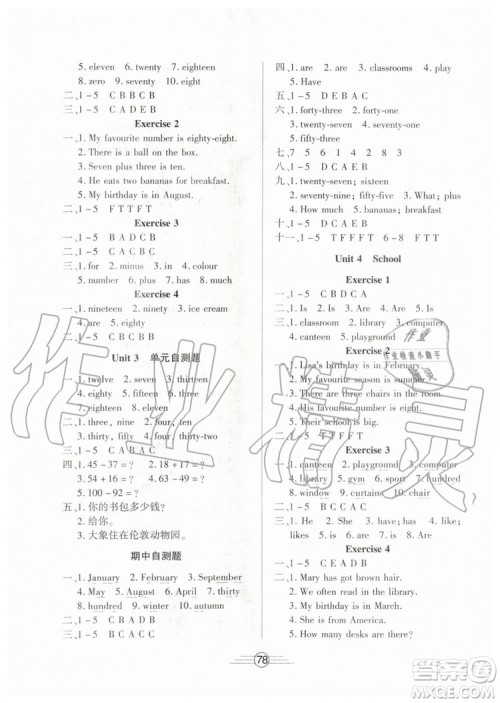 5. eleven 6. twenty 7. eighteen
8. zero 9. seventy 10. eight
二、1-5 C B B C B
三、1-5 C A D E B
Exercise 2
一、1. My favourite number is eighty-eight.
2. There is a ball on the box.
3. Seven plus three is ten.
4. He eats two bananas for breakfast.
5. My birthday is in August.
二、1-5 F T T F T
Exercise 3
一、1-5 B A D C B
二、1-5 C A C B C
三、1. for 2. minus 3. in 4. colour
5. many 6. of 7. has 8. much
Exercise 4
一、1. nineteen 2. ninety 3. ice cream
4. are 5. eighty
二、1-5 C A
三、1-5
Unit 3 单元自测题
一、1. twelve 2. seven 3. eleven
4. fifteen 5. eighteen
二、1. nine 2. ten 3. about
4. four, four, ten
三、1. thirty, fifty 4. four, thirty-two
三、1-5 C A D C B
四、1. 45-37=? 2. 24+18=?
3. 54+16=?
5. 100-92=?
五、1. 你的书包多少钱?
2. 给你。
3. 大象住在伦敦动物园。
期中自测题
一、1. January 2. February 3. September
4. May 5. August 6. April 7. thirty
8. hundred 9. winter 10. autumn
二、1-5 C B A D B
三、1-5 C B A B D
四、1. are 2. are 3. classrooms 4. play
5. Have
五、1-5 D E B A C
六、1. forty-three 2. forty-one
3. twenty-seven 4. seventy-one
5. thirteen
七、7 5 6 1 2 4 3
八、1-5 D C A E B
九、1. twenty-seven; sixteen
2. seventy-nine; fifty-five 3. What; and
4. How much 5. playground
十、1-5 D C A E B
十一、1-5 T F F F T 6-8 F F T
Unit 4 School
Exercise 1
一、1-5 C B D C A
二、1. Is 2. is 3. are 4. is 5. are
三、1. classroom 2. library 3. computer
4. canteen 5. playground
Exercise 2
一、1. Lisa's birthday is in February.
2. My favourite season is summer.
3. There are three chairs in the classroom.
4. There are books in the library.
5. Their school is big.
二、1-5
Exercise 3
一、1. canteen 2. playground 3. computer
4. library 5. gym 6. sport 7. garden
8. window 9. curtains 10. chair
二、1-5 B C C A C
三、1. How 2. and; is 3. He; She; an;
likes 4. is 5. is
Exercise 4
一、1-5 C E A D B
二、1. Mary has got brown hair.
2. I am good at English.
3. My birthday is in March.
4. She is from America.
5. How many desks are there?
78